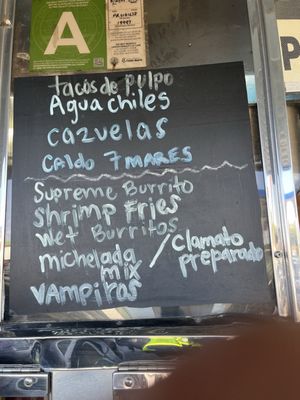 A
tacos de pulpo
Aguachiles
cazuelas
Caldo 7 mares
Supreme Burrito
shrimp Fries
wet Burritos
michelada mix / Clamato preparado
vampiros
P